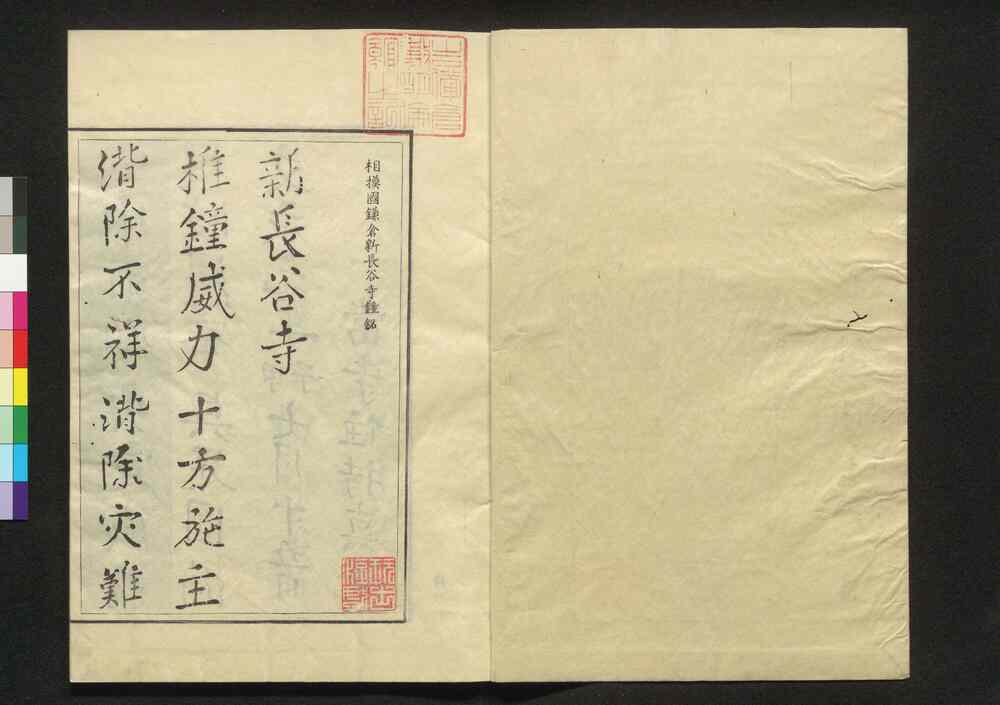 相摸國鎌倉新長谷寺鐘銘
新長谷寺
椎鐘威力十方施主
除不祥除灾難